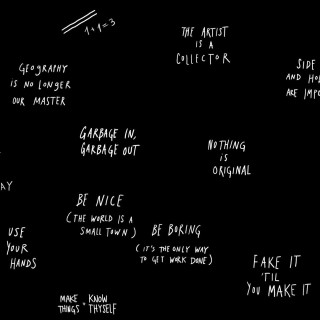 1+1=3
THE ARTIST
IS A
COLLECTOR
GEOGRAPHY
IS NO LONGER
OUR MASTER
SIDE
AND
ARE
GARBAGE IN,
GARBAGE OUT
NOTHING
IS
ORIGINAL
AY
BE NICE
(THE WORLD IS A
SMALL TOWN)
BE BORING
(IT'S THE ONLY WAY
TO GET WORK DONE)
USE
YOUR
HANDS
FAKE IT
'TIL
YOU MAKE IT
MAKE THINGS
KNOW THYSELF